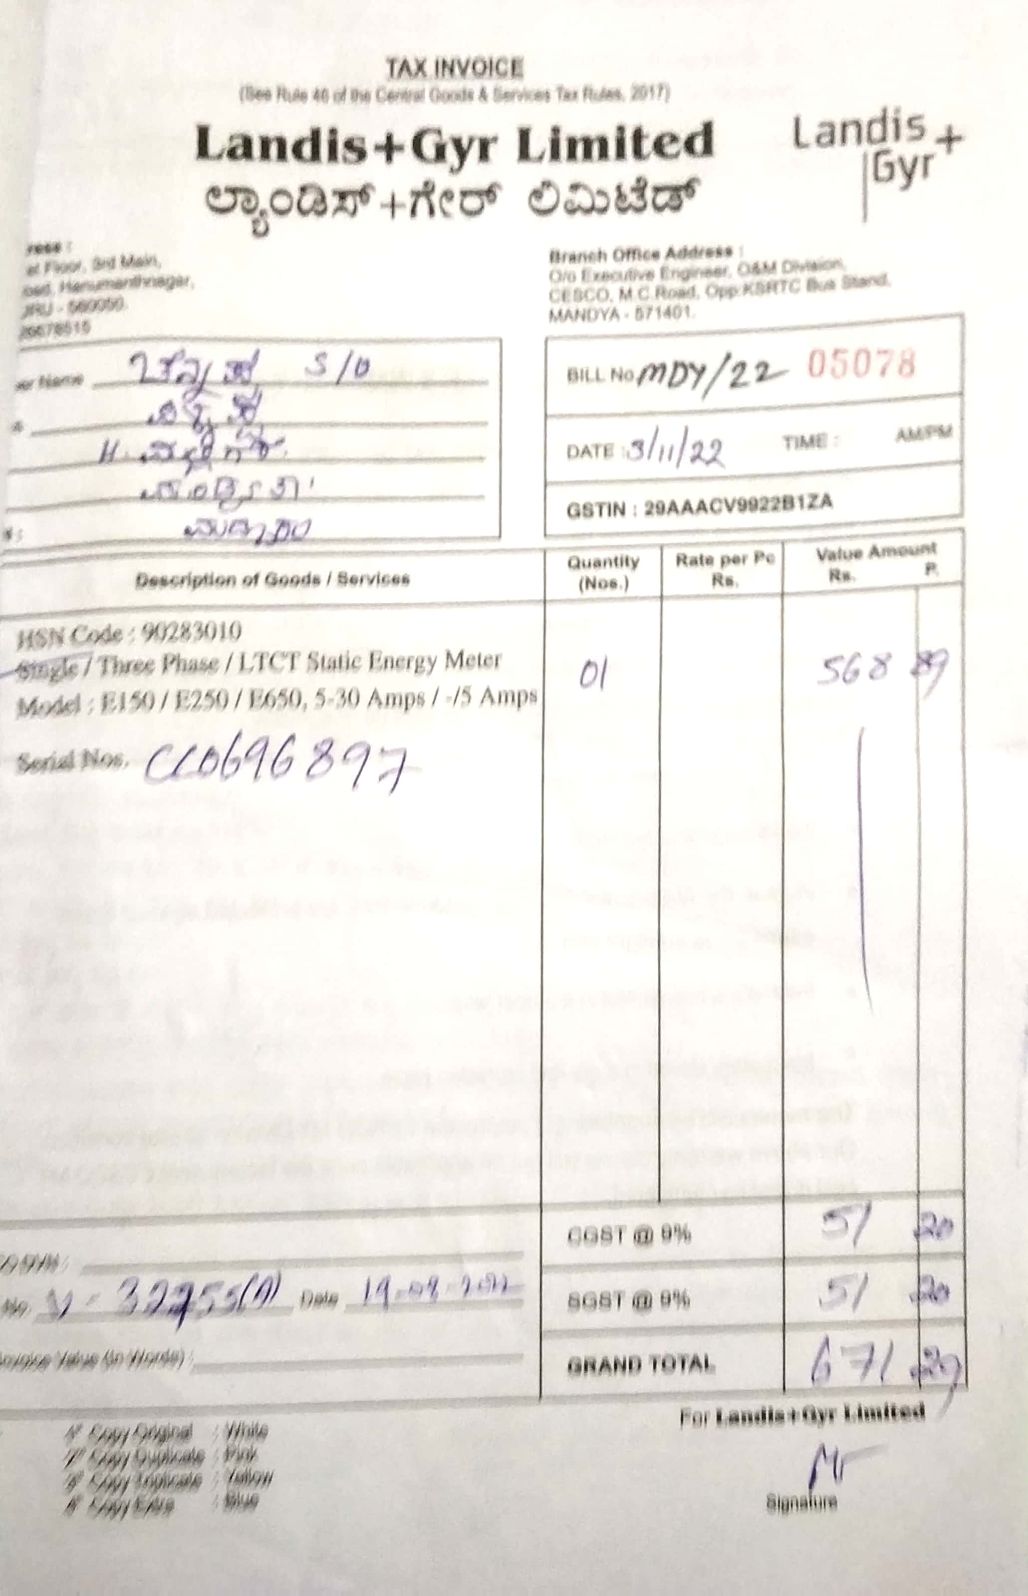 TAX INVOICE
(See Rule 46 of the Central Goods & Services Tax Rules, 2017)
Landis+Gyr Limited
ಲ್ಯಾಂಡಿಸ್+ಗೇರ್ ಲಿಮಿಟೆಡ್
Landis+
Gyr
ress :
st Floor, 3rd Main,
oad, Hanumanthnagar,
URU - 560050.
26678515
Branch Office Address :
O/o Executive Engineer, O&M Division,
CESCO, M.C.Road, Opp:KSRTC Bus Stand,
MANDYA - 571401.
er Name S/O
BILL No. MDY/22 05078
DATE : 3/11/22 TIME : AM/PM
GSTIN : 29AAACV9922B1ZA
Description of Goods / Services Quantity (Nos.) Rate per Pc Rs. Value Amount Rs. P.
HSN Code : 90283010
Single / Three Phase / LTCT Static Energy Meter 01 568 89
Model : E150 / E250 / E650, 5-30 Amps / -/5 Amps
Serial Nos. CC0696897
CGST @ 9% 51 20
No. Date 19-08-2022 SGST @ 9% 51 20
Invoice Value (In Words) : GRAND TOTAL 671 29
For Landis+Gyr Limited
Copy Original : White
Copy Duplicate : Pink
Copy Triplicate : Yellow
Copy Extra : Blue
Signature